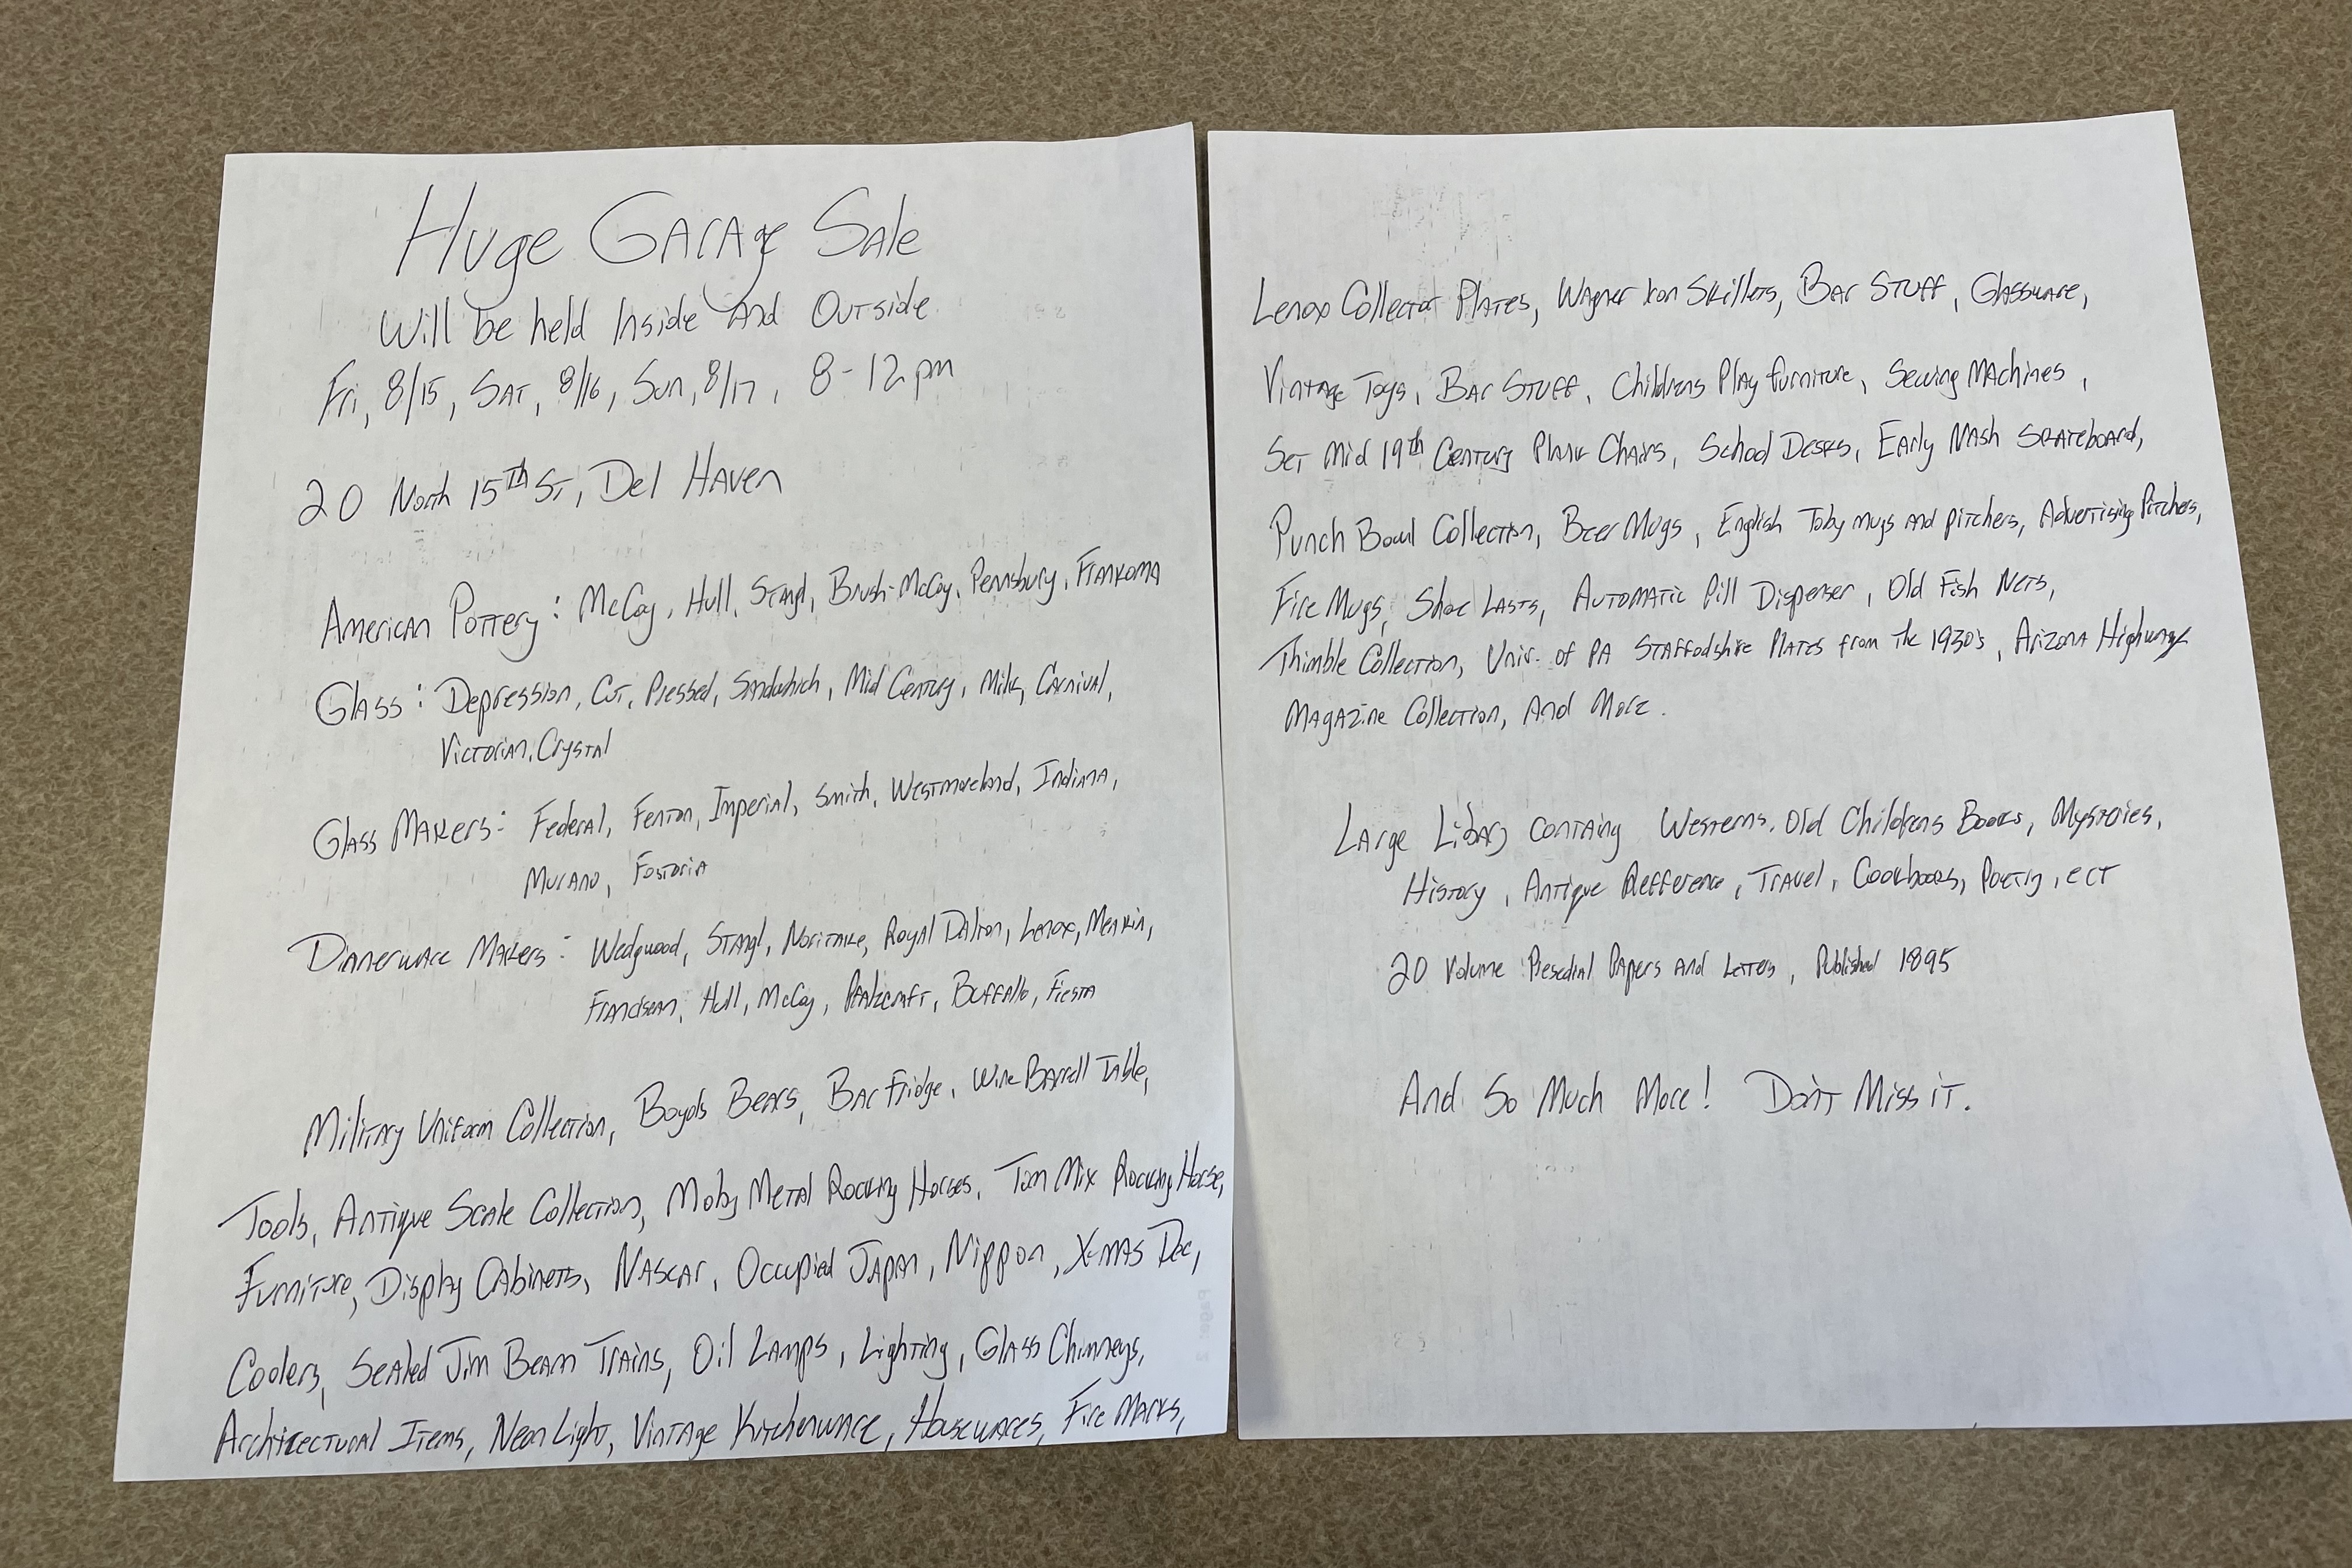 Huge Garage Sale
Will be held Inside and Outside
Fri, 8/15, Sat, 8/16, Sun, 8/17, 8-12 pm
20 North 15th St, Del Haven
American Pottery: McCoy, Hull, Stangl, Brush-McCoy, Pennsbury, Frankoma
Glass: Depression, Cut, Pressed, Sandwhich, Mid Century, Milk, Carnival,
Victorian, Crystal
Glass Makers: Federal, Fenton, Imperial, Smith, Westmoreland, Indiana,
Murano, Fostoria
Dinnerware Makers: Wedgwood, Stangl, Noritake, Royal Dalton, Lenox, Meakin,
Franciscan, Hull, McCoy, Pfalzcraft, Buffallo, Fiesta
Military Uniform Collection, Boyds Bears, Bar Fridge, Wine Barrell Table,
Tools, Antique Scale Collection, Moby Metal Rocking Horses, Tom Mix Rocking Horse,
Furniture, Display Cabinets, Nascar, Occupied Japan, Nippon, X-mas Dec,
Coolers, Sealed Jim Beam Trains, Oil Lamps, Lighting, Glass Chimneys,
Architectural Items, Neon Light, Vintage Kitchenware, Housewares, Fire Marks,
Lenox Collector Plates, Wagner Iron Skillets, Bar Stuff, Glassware,
Vintage Toys, Bar Stuff, Childrens Play furniture, Sewing Machines,
Set Mid 19th Century Plank Chairs, School Desks, Early Nash Skateboard,
Punch Bowl Collection, Beer Mugs, English Toby mugs and pitchers, Advertising Pitchers,
Fire Mugs, Shoe Lasts, Automatic Pill Dispenser, Old Fish Nets,
Thimble Collection, Univ. of PA Staffodshire Plates from the 1930's, Arizona Highway
Magazine Collection, And More.
Large Libary containg Westerns, Old Childrens Books, Mysteries,
History, Antique Refference, Travel, Cookbooks, Poetry, ect
20 Volume Presedial Papers and Letters, Published 1895
And So Much More! Don't Miss it.